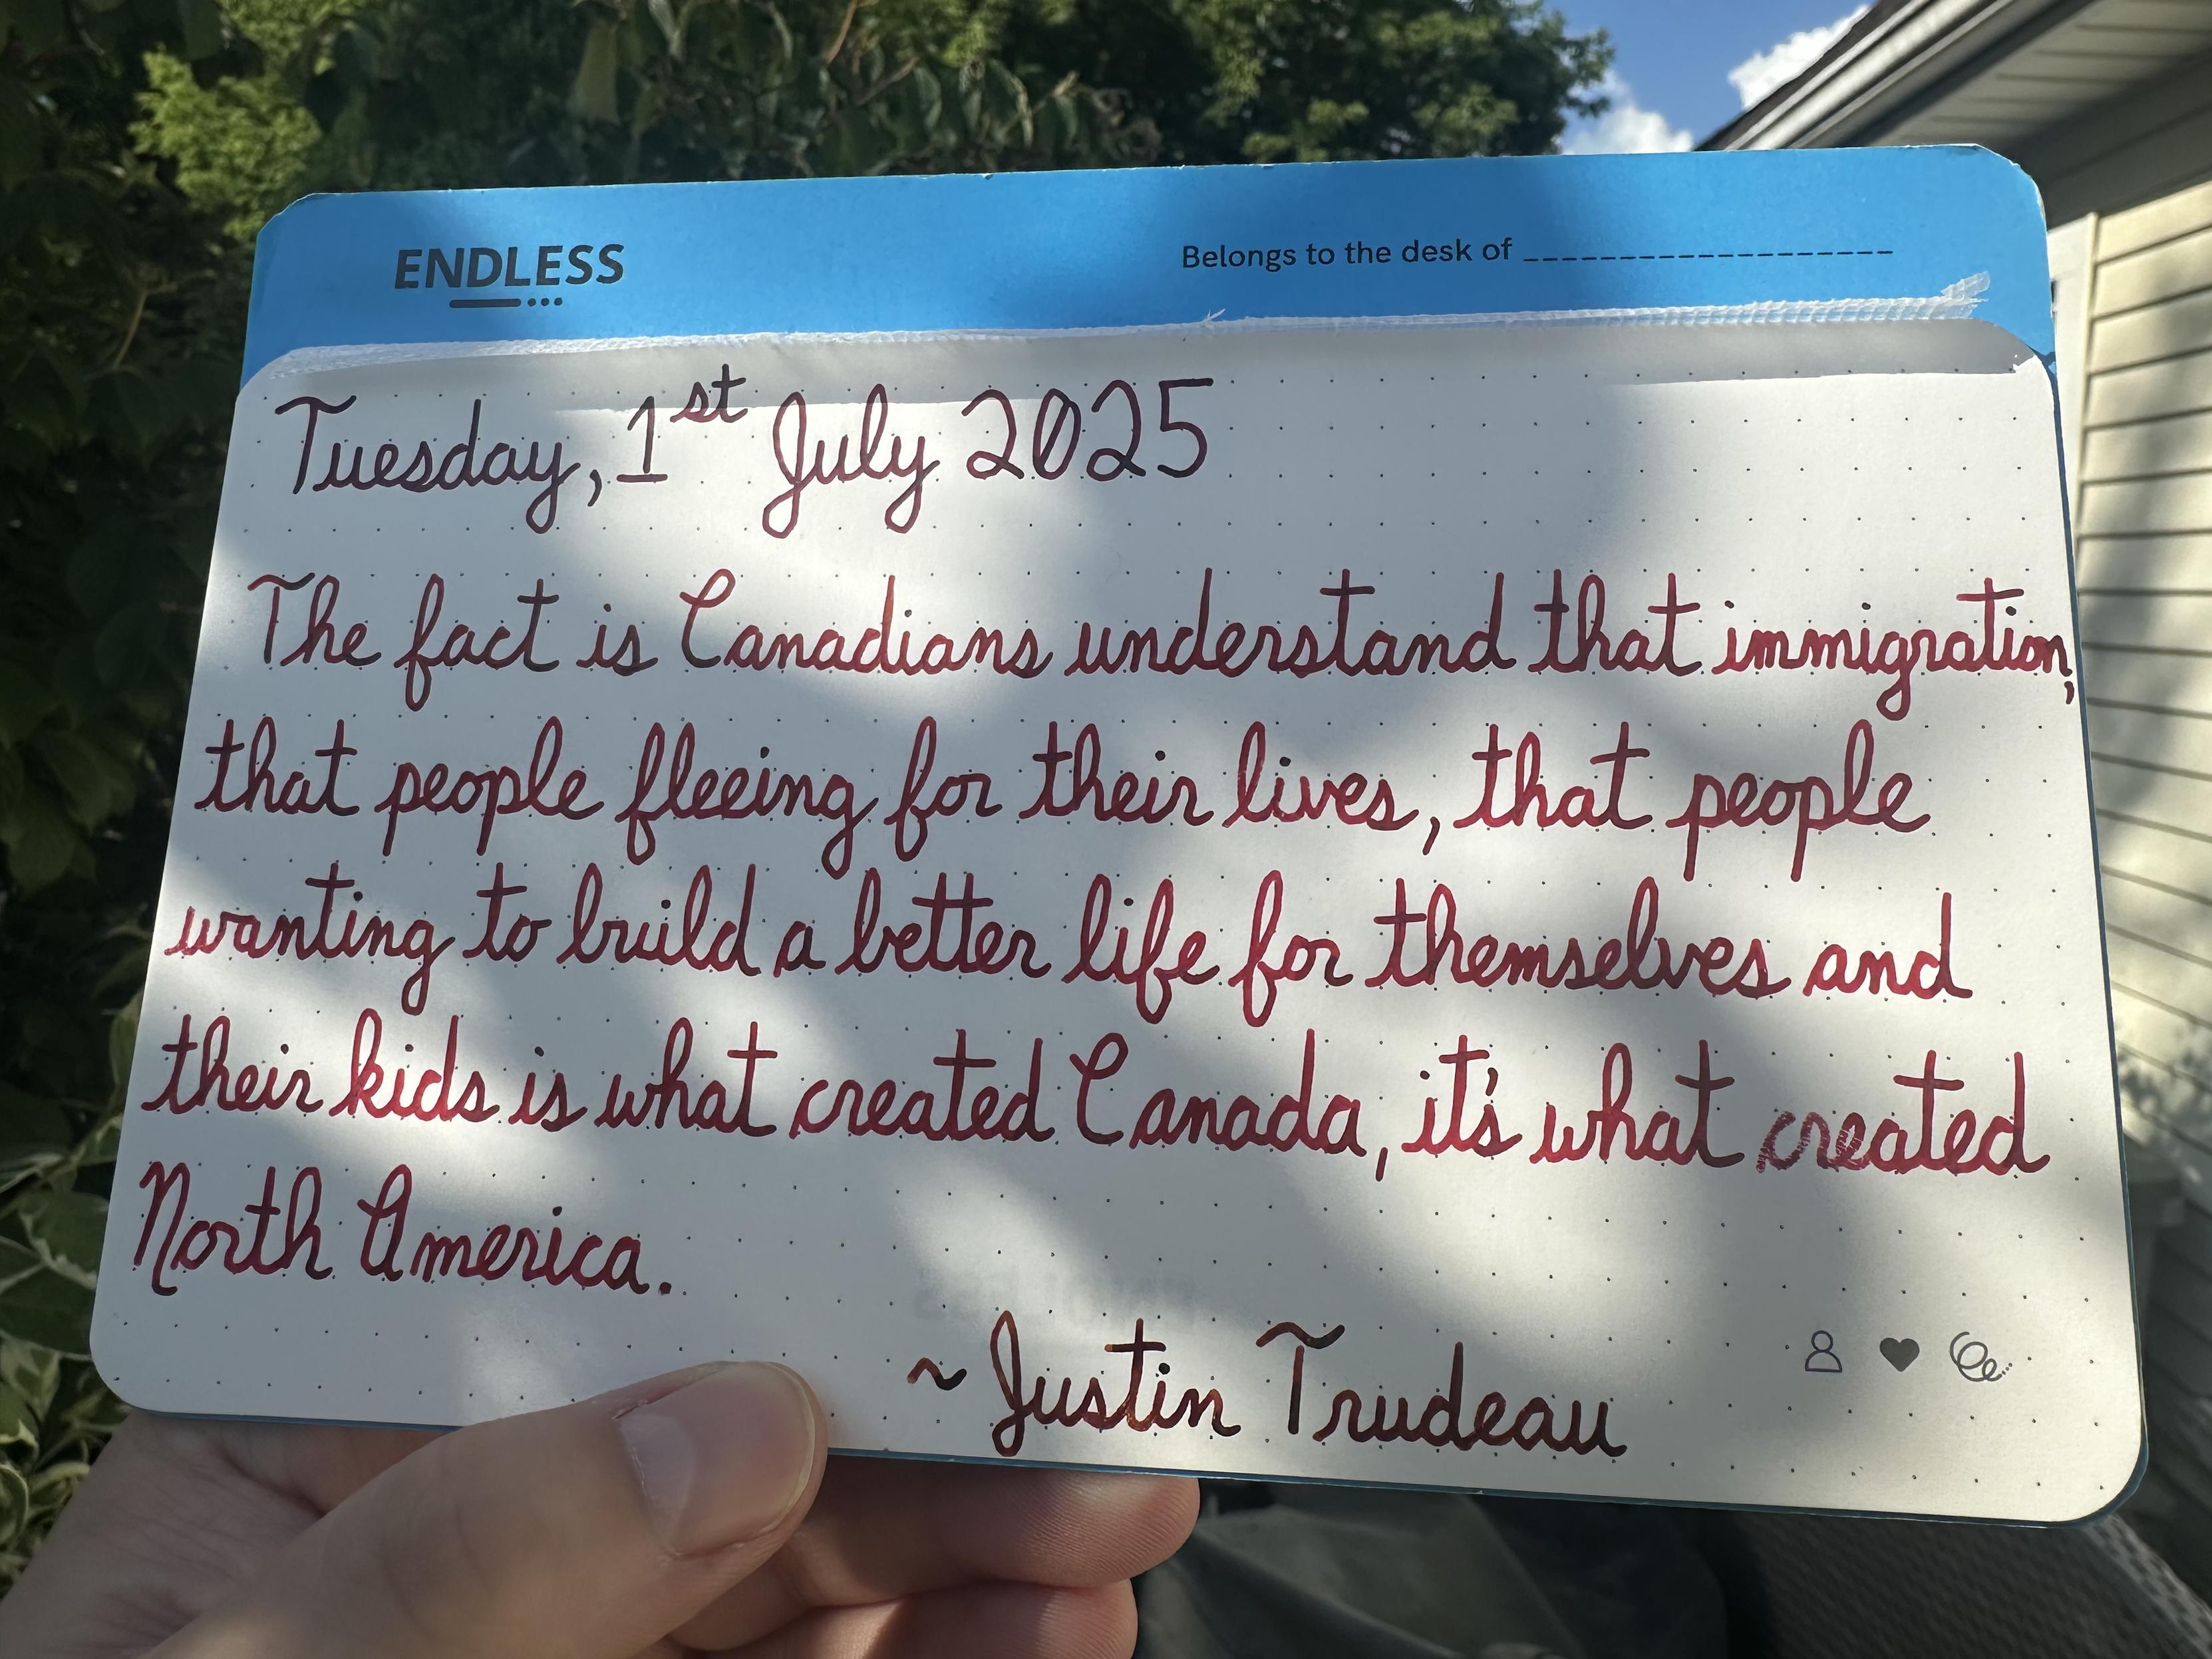 ENDLESS
Belongs to the desk of
Tuesday, 1st July 2025
The fact is Canadians understand that immigration,
that people fleeing for their lives, that people
wanting to build a better life for themselves and
their kids is what created Canada, it's what created
North America.
~ Justin Trudeau